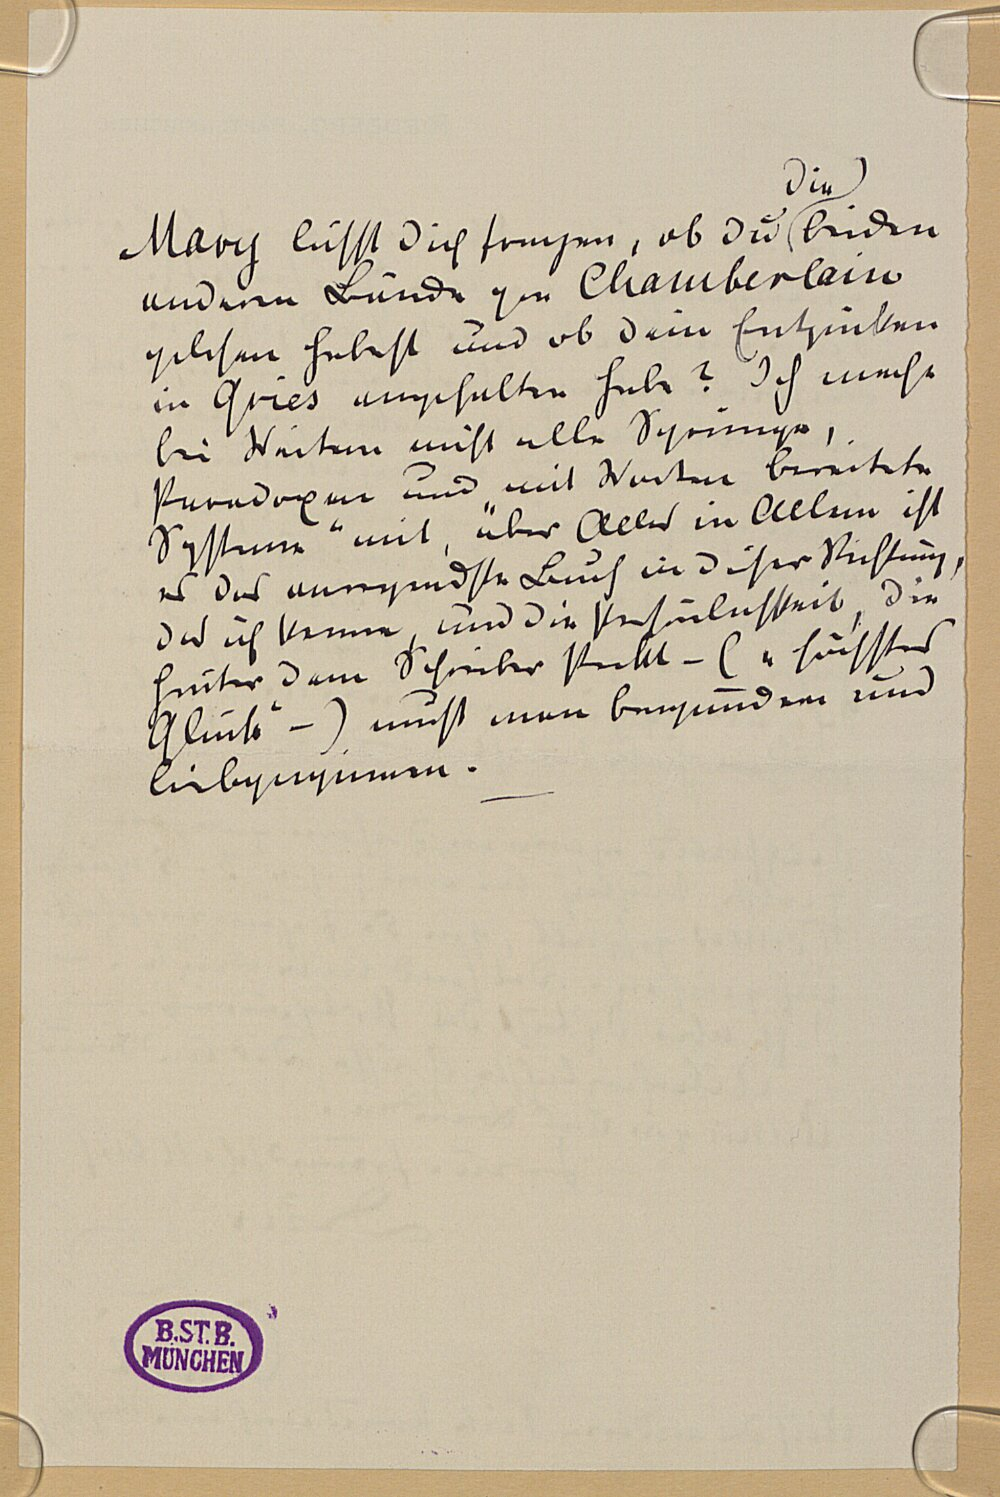 die
Mary läßt Dich fragen, ob Du beiden
anderen Bände von Chamberlain
gelesen habest und ob dein Entzücken
in Gries angehalten habe? Ich mache
bei Weitem nicht alle Sprünge,
Paradoxen und „mit Worten bereitete
Systeme“ mit, über Alles in Allem ist
es das anregendste Buch in dieser Richtung,
das ich kenne, und die Persönlichkeit, die
hinter dem Schreiber steckt – („höchstes
Glück“ –) muß man bewundern und
liebgewinnen.
B.ST.B.
MÜNCHEN